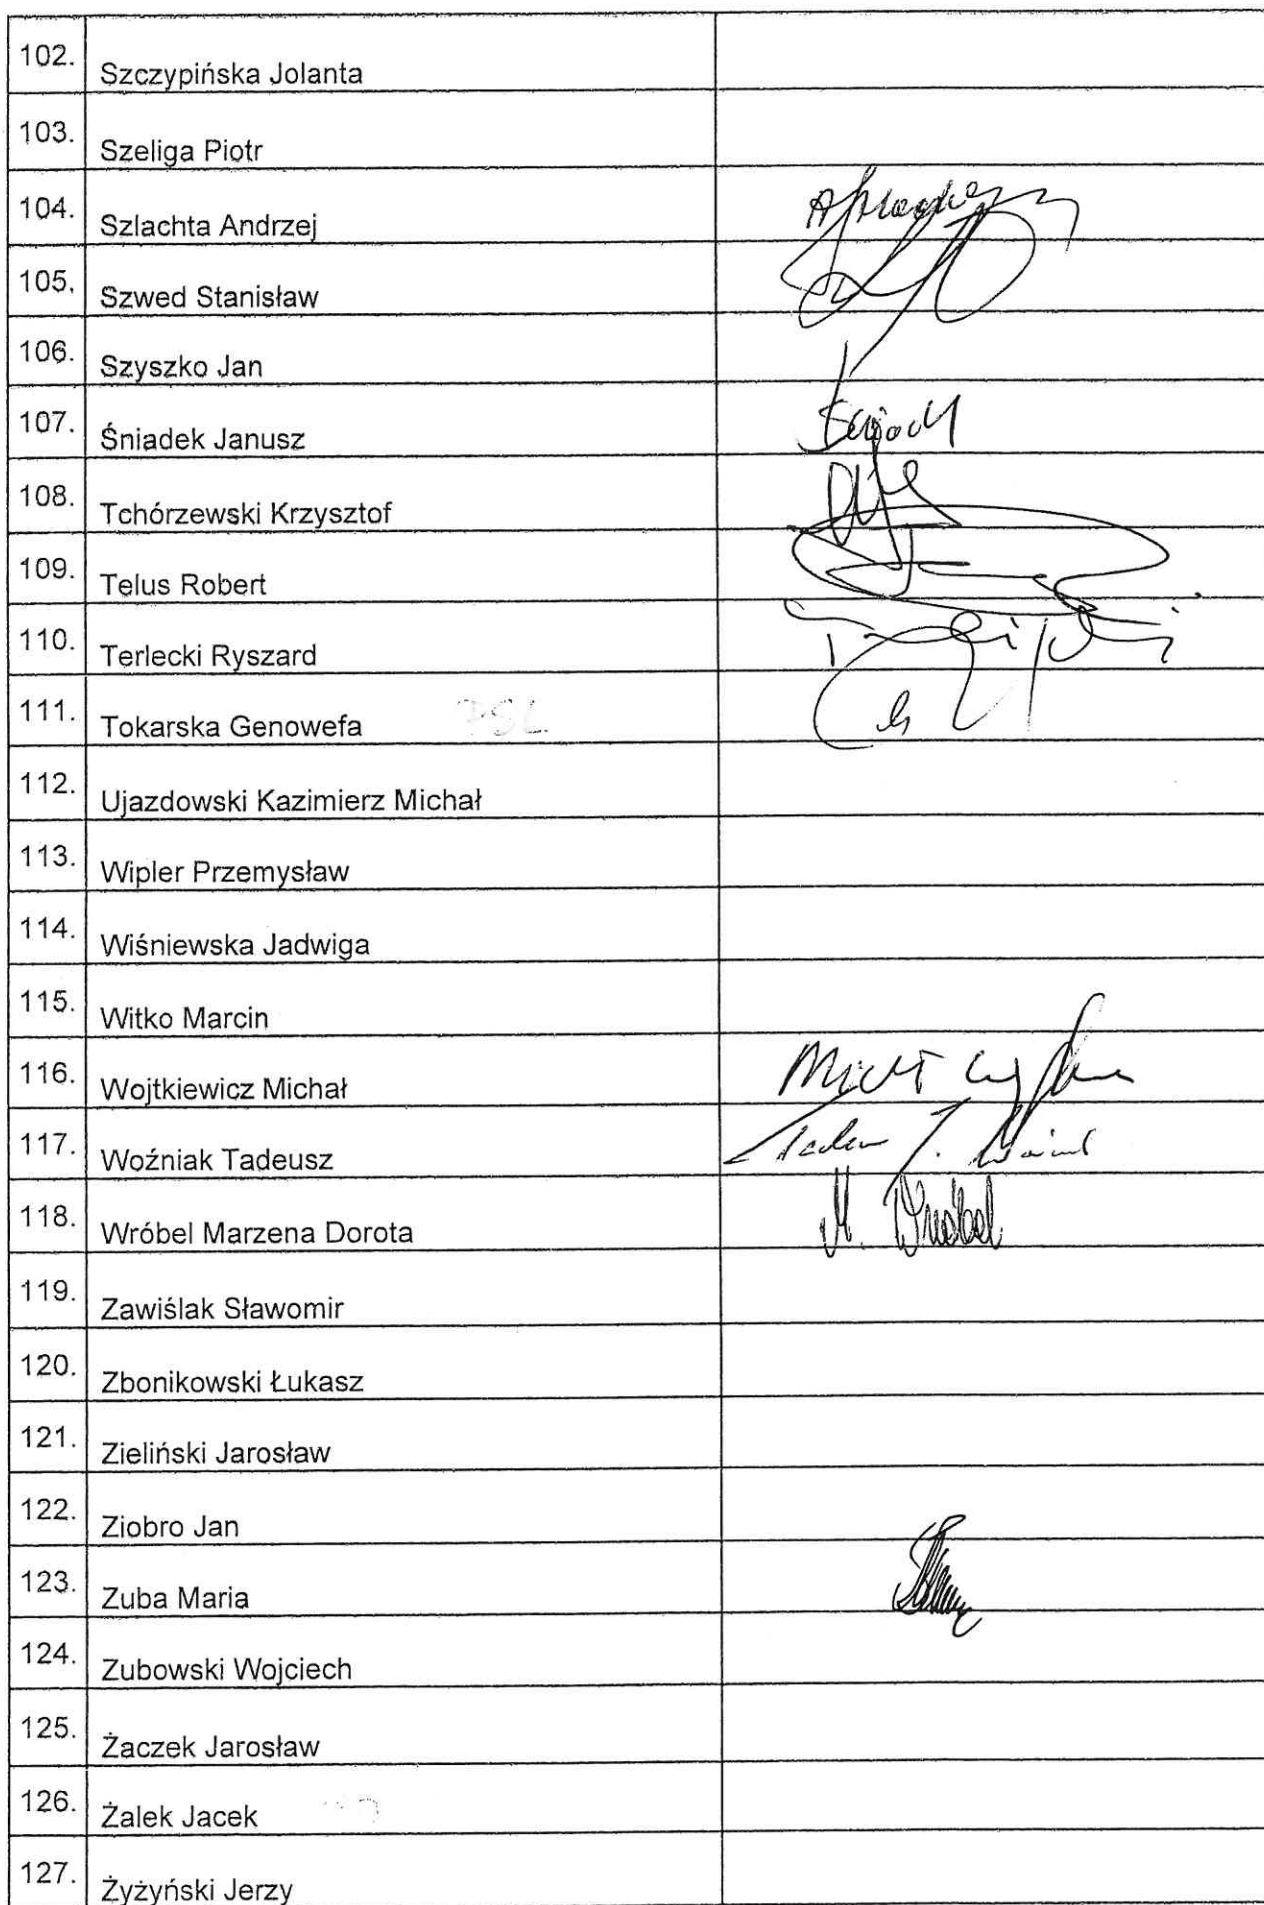 102. Szczypińska Jolanta
103. Szeliga Piotr
104. Szlachta Andrzej
105. Szwed Stanisław
106. Szyszko Jan
107. Śniadek Janusz
108. Tchórzewski Krzysztof
109. Telus Robert
110. Terlecki Ryszard
111. Tokarska Genowefa PSL
112. Ujazdowski Kazimierz Michał
113. Wipler Przemysław
114. Wiśniewska Jadwiga
115. Witko Marcin
116. Wojtkiewicz Michał
117. Woźniak Tadeusz
118. Wróbel Marzena Dorota M. Wróbel
119. Zawiślak Sławomir
120. Zbonikowski Łukasz
121. Zieliński Jarosław
122. Ziobro Jan
123. Zuba Maria
124. Zubowski Wojciech
125. Żaczek Jarosław
126. Żalek Jacek
127. Żyżyński Jerzy